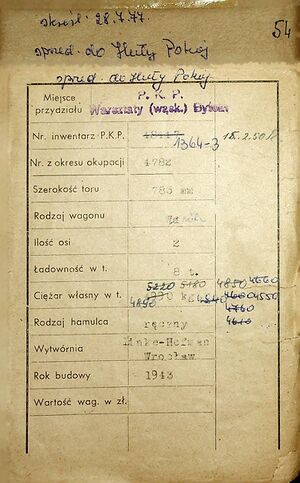 skreśl. 28.7.77.
54
sprzed. do Huty Pokój
sprzed. do Huty Pokój
Miejsce przydziału
P. K. P.
Warsztaty (wąsk.) Bytom
Nr. inwentarz P.K.P.
1364-3
15.2.50
Nr. z okresu okupacji 4782
Szerokość toru 785 mm
Rodzaj wagonu
Ilość osi 2
Ładowność w t. 8 t.
5220 5180 4850 4660
Ciężar własny w t. kg. 4550
4890
4760
Rodzaj hamulca ręczny
4610
Wytwórnia Linke-Hofman Wrocław
Rok budowy 1943
Wartość wag. w zł.